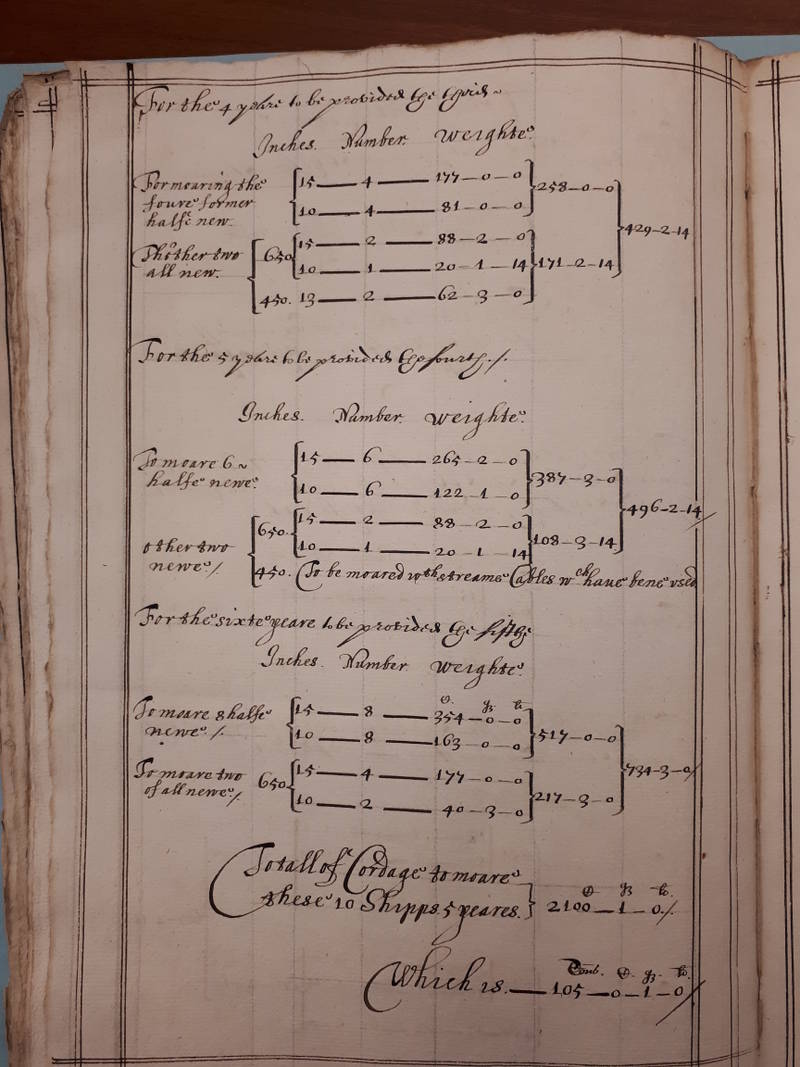 For the 4 yeare to be provided the third
Inches. Number. Weighte.
For moaring the
foure former
halfe new.
15 — 4 — 177—0—0
10 — 4 — 81—0—0
258—0—0
Th'other two
all new.
650
15 — 2 — 88—2—0
10 — 1 — 20—1—14
450. 13 — 2 — 62—3—0
171—2—14
429—2—14
For the 5 yeare to be provided the fourth./
Inches. Number. Weighte.
To moare 6
halfe newe.
15 — 6 — 265—2—0
10 — 6 — 122—1—0
387—3—0
other two
newe/
650
15 — 2 — 88—2—0
10 — 1 — 20—1—14
108—3—14
496—2—14/
450. To be moared wth streame Cables wch have bene used
For the sixte yeare to be provided the fifthe
Inches. Number. Weighte.
To moare 8 halfe
newe./
15 — 8 — 354—0—0
10 — 8 — 163—0—0
517—0—0
To moare two
of all newe/
650
15 — 4 — 177—0—0
10 — 2 — 40—3—0
217—3—0
734—3—0/
Totall of Cordage to moare
these 10 Shipps 5 yeares.
2100—1—0./
Which is. — 105—0—1—0/